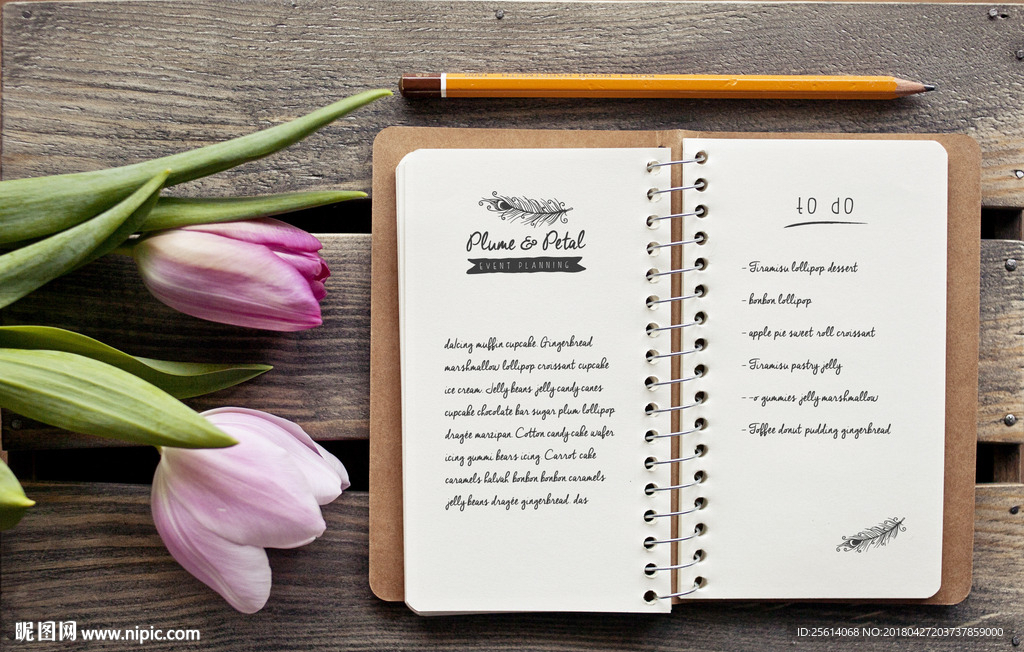 Plume & Petal
EVENT PLANNING
dalcing muffin cupcake. Gingerbread
marshmallow lollipop croissant cupcake
ice cream. Jelly beans jelly candy canes
cupcake chocolate bar sugar plum lollipop
dragée marzipan. Cotton candy cake wafer
icing gummi bears icing. Carrot cake
caramels halvah bonbon bonbon caramels
jelly beans dragée gingerbread. das
to do
- Tiramisu lollipop dessert
- bonbon lollipop
- apple pie sweet roll croissant
- Tiramisu pastry jelly
- -o gummies jelly marshmallow
- Toffee donut pudding gingerbread
昵图网 www.nipic.com
ID:25614068 NO:20180427203737859000